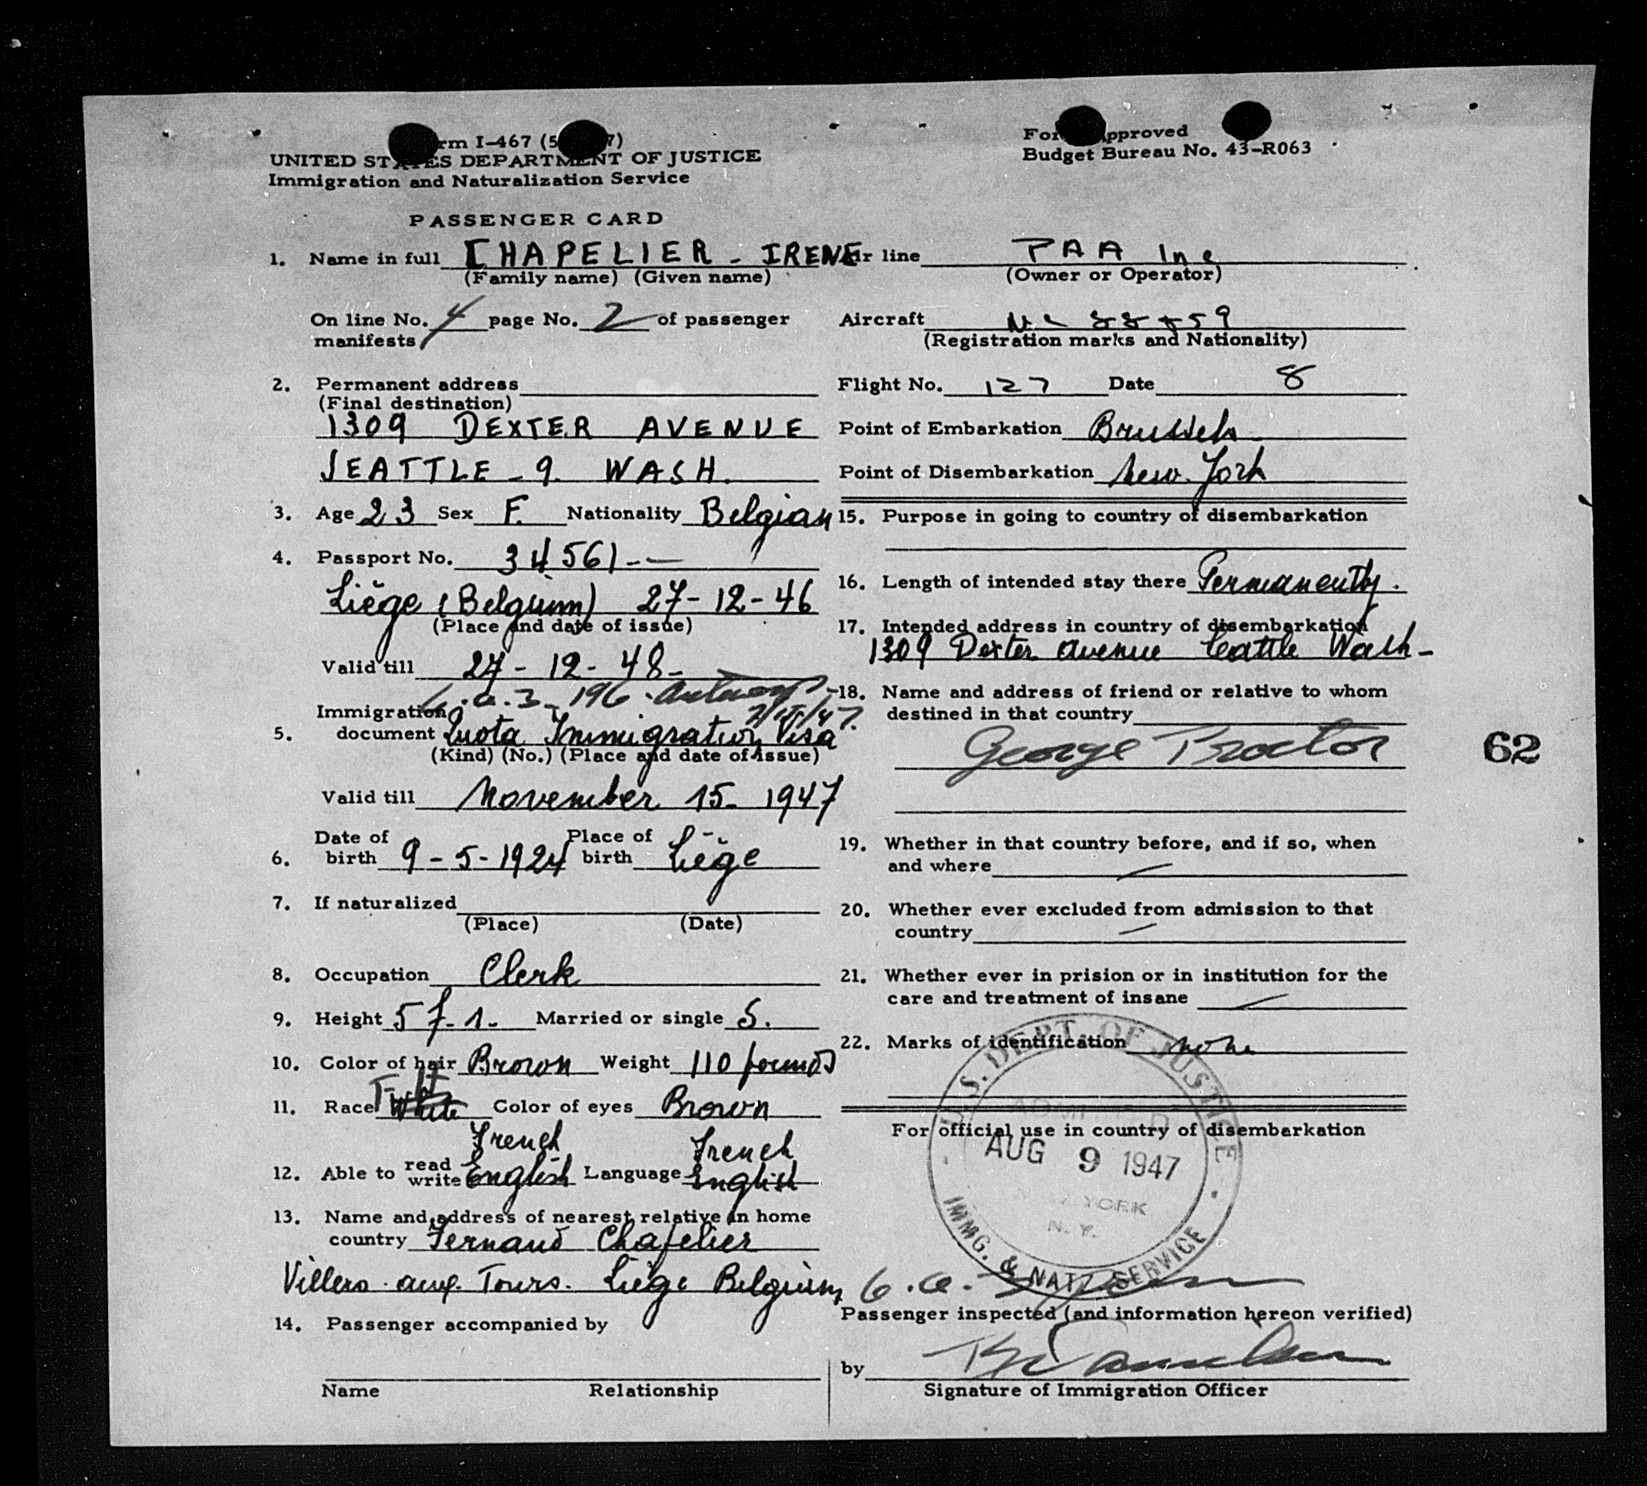 rm I-467 (5 7)
UNITED STATES DEPARTMENT OF JUSTICE
Immigration and Naturalization Service
PASSENGER CARD
1. Name in full CHAPELIER - IRENE
(Family name) (Given name)
On line No. 4 page No. 2 of passenger
manifests
2. Permanent address
(Final destination)
1309 DEXTER AVENUE
SEATTLE - 9. WASH.
3. Age 23 Sex F. Nationality Belgian
4. Passport No. 34561--
Liège (Belgium) 27-12-46
(Place and date of issue)
Valid till 27-12-48-
196 Antwerp
Immigration
5. document Quota Immigration Visa
(Kind) (No.) (Place and date of issue)
Valid till November 15- 1947
Date of Place of
6. birth 9-5-1924 birth Liège
7. If naturalized
(Place) (Date)
8. Occupation Clerk
9. Height 5 f. 1. Married or single S.
10. Color of hair Brown Weight 110 pounds
11. Race White Color of eyes Brown
French French
12. Able to read write English Language English
13. Name and address of nearest relative in home
country Fernand Chapelier
Villers aux Tours. Liège Belgium
14. Passenger accompanied by
Name Relationship
Form Approved
Budget Bureau No. 43-R063
Air line PAA Inc
(Owner or Operator)
Aircraft
(Registration marks and Nationality)
Flight No. 127 Date 8
Point of Embarkation Brussels
Point of Disembarkation New-York
15. Purpose in going to country of disembarkation
16. Length of intended stay there Permanently.
17. Intended address in country of disembarkation
1309 Dexter avenue Seattle Wash-
18. Name and address of friend or relative to whom
destined in that country
George Proctor
62
19. Whether in that country before, and if so, when
and where —
20. Whether ever excluded from admission to that
country —
21. Whether ever in prision or in institution for the
care and treatment of insane —
22. Marks of identification none
For official use in country of disembarkation
U.S. DEPT. OF JUSTICE
ADMITTED
AUG 9 1947
NEW YORK
N. Y.
IMMG. & NATZ. SERVICE
Passenger inspected (and information hereon verified)
by
Signature of Immigration Officer